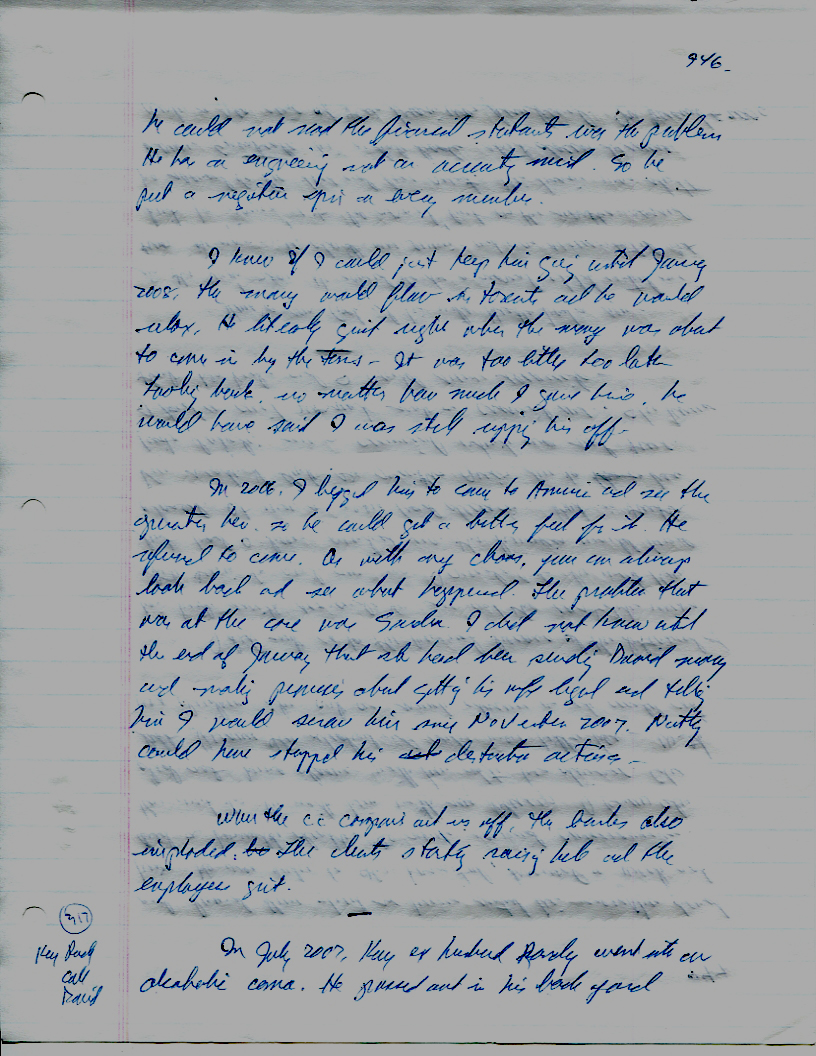 946-
He could not read the financial statements was the problem
He has an engineering not an accounting mind. So he
put a negative spin on every number.
I knew if I could just keep him going until January
2008, the money would flow in torrents and he would
relax. He literally quit right when the money was about
to come in by the tons - It was too little too late
looking back, no matter how much I gave him, he
would have said I was still ripping him off-
In 2006, I begged him to come to America and see the
operation here so he could get a better feel for it. He
refused to come. As with any chaos, you can always
look back and see what happened. The problem that
was at the core was I did not know until
the end of January that she had been sending David money
and making promises about getting his wife legal and telling
him I would screw him since November 2007. Nothing
could have stopped his destructive actions-
When the cc companies cut us off, the banks also
imploded. The clients starting raising hell and the
employees quit.
3/17
Kay
call
David
In July 2007, Kay ex husband went into an
alcoholic coma. He passed out in his back yard